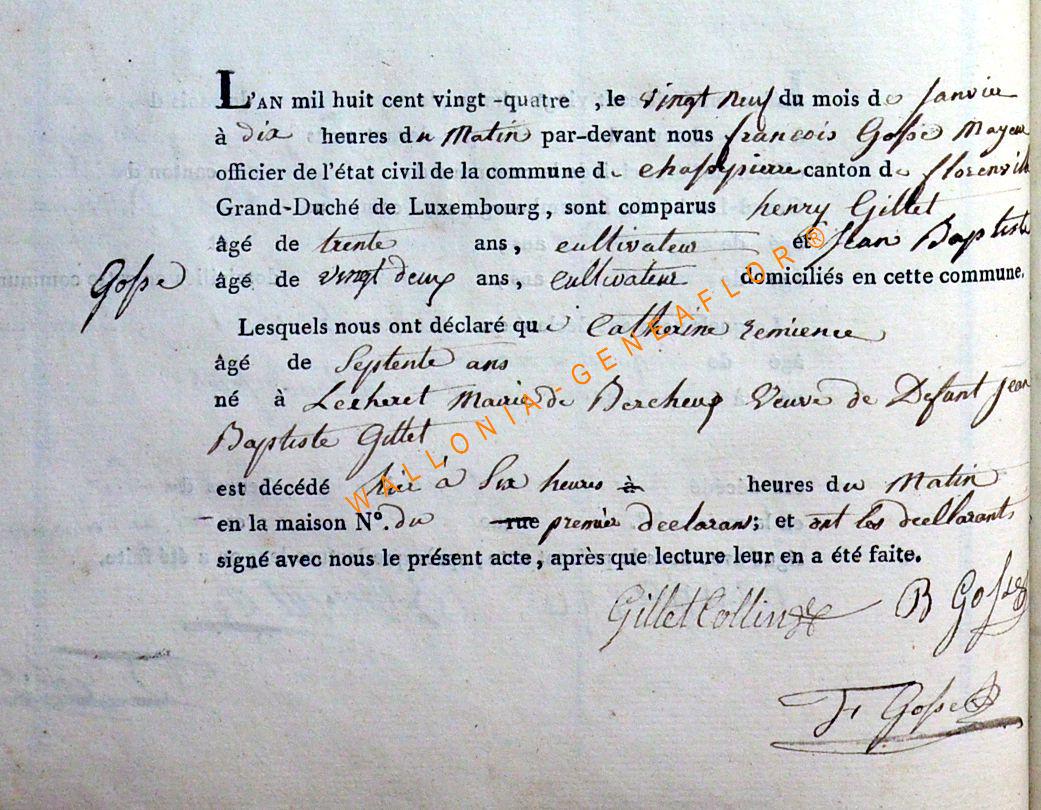 L'AN mil huit cent vingt-quatre, le vingt neuf du mois de Janvier
à dix heures du Matin par-devant nous françois Gosse Mayeur
officier de l'état civil de la commune de chassepierre canton de florenville
Grand-Duché de Luxembourg, sont comparus henry Gillet
âgé de trente ans, cultivateur et Jean Baptiste
Gosse âgé de vingt deux ans, cultivateur domiciliés en cette commune.
Lesquels nous ont déclaré que Catherine remience
âgé de Septente ans
né à Lescheret Mairie de Bercheux Veuve de Defunt Jean
Baptiste Gillet
est décédé hier à Six heures à heures du Matin
en la maison N°. du rue premier declarans; et ont les decllarants
signé avec nous le présent acte, après que lecture leur en a été faite.
Gillet Collin B Gosse
F Gosse
WALLONIA-GENEAFLOR®